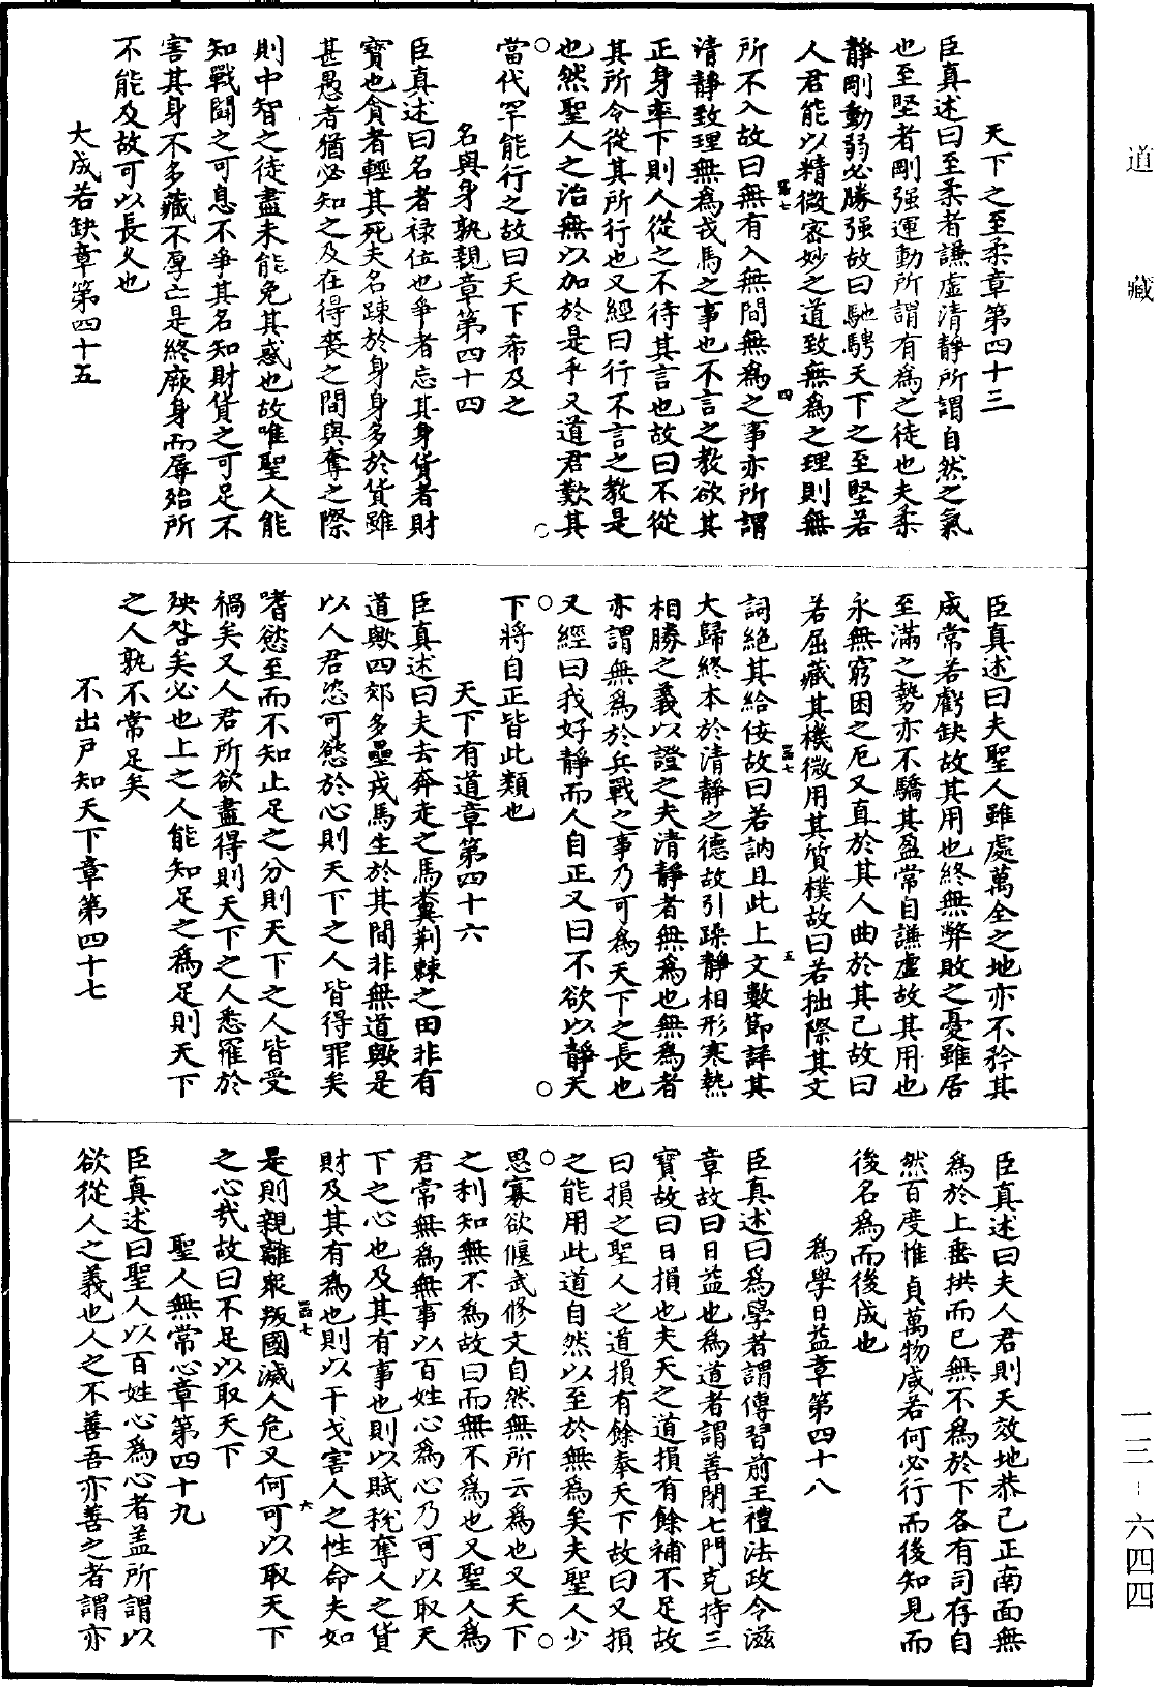 道藏
天下之至柔章第四十三
臣真述曰至柔者謙虛清靜所謂自然之氣
也至堅者剛强運動所謂有爲之徒也夫柔
靜剛動弱必勝强故曰馳騁天下之至堅若
人君能以精微密妙之道致無爲之理則無
所不入故曰無有入無間無爲之事亦所謂
清靜致理無爲戎馬之事也不言之教欲其
正身率下則人從之不待其言也故曰不從
其所令從其所行也又經曰行不言之教是
也然聖人之治無以加於是乎又道君歎其
當代罕能行之故曰天下希及之
名與身孰親章第四十四
臣真述曰名者禄位也爭者忘其身貨者財
寳也貪者輕其死夫名踈於身身多於貨雖
甚愚者猶必知之及在得喪之間與奪之際
則中智之徒盡未能免其惑也故唯聖人能
知戰鬪之可息不爭其名知財貨之可足不
害其身不多藏不厚亡是終廞身而辱殆所
不能及故可以長久也
大成若缺章第四十五
臣真述曰夫聖人雖處萬全之地亦不矜其
成常若虧缺故其用也終無弊敗之憂雖居
至滿之勢亦不驕其盈常自謙虛故其用也
永無窮困之厄又直於其人曲於其己故曰
若屈藏其機微用其質樸故曰若拙際其文
詞絶其給佞故曰若訥且此上文數節詳其
大歸終本於清靜之德故引躁靜相形寒熱
相勝之義以證之夫清靜者無爲也無爲者
亦謂無爲於兵戰之事乃可爲天下之長也
又經曰我好靜而人自正又曰不欲以靜天
下將自正皆此類也
天下有道章第四十六
臣真述曰夫去奔走之馬糞荆棘之田非有
道歟四郊多壘戎馬生於其間非無道歟是
以人君恣可慾於心則天下之人皆得罪矣
嗜慾至而不知止足之分則天下之人皆受
禍矣又人君所欲盡得則天下之人悉罹於
殃咎矣必也上之人能知足之爲足則天下
之人孰不常足矣
不出戶知天下章第四十七
臣真述曰夫人君則天效地恭己正南面無
爲於上垂拱而已無不爲於下各有司存自
然百度惟貞萬物咸若何必行而後知見而
後名爲而後成也
爲學日益章第四十八
臣真述曰爲學者謂傳習前王禮法政令滋
章故曰日益也爲道者謂善閉七門克持三
寳故曰日損也夫天之道損有餘補不足故
曰損之聖人之道損有餘奉天下故曰又損
之能用此道自然以至於無爲矣夫聖人少
思寡欲偃武修文自然無所云爲也又天下
之利知無不爲故曰而無不爲也又聖人爲
君常無爲無事以百姓心爲心乃可以取天
下之心也及其有事也則以賦税奪人之貨
財及其有爲也則以干戈害人之性命夫如
是則親離衆叛國滅人危又何可以取天下
之心哉故曰不足以取天下
聖人無常心章第四十九
臣真述曰聖人以百姓心爲心者盖所謂以
欲從人之義也人之不善吾亦善之者謂亦
一三-六四四